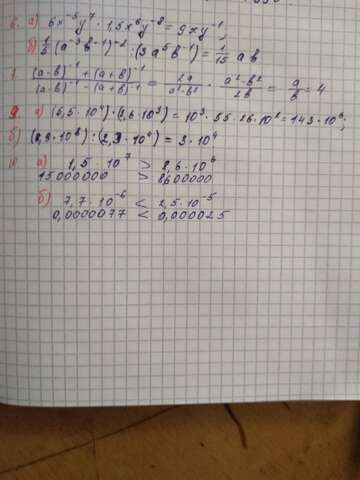 6. а) 6x⁻⁵y⁷ · 1,5x⁶y⁻⁸ = 9xy⁻¹;
б) 1/5 (a⁻³b⁻¹)⁻² : (3a⁵b⁻¹) = 1/15 ab
((a-b)⁻¹ + (a+b)⁻¹)/((a-b)⁻¹ - (a+b)⁻¹) = 2a/(a²-b²) · (a²-b²)/2b = a/b = 4
9. а) (5,5 · 10⁴) · (2,6 · 10³) = 10³ · 55 · 26 · 10² = 143 · 10⁶;
б) (6,9 · 10⁸) : (2,3 · 10⁴) = 3 · 10⁴
10 а) 1,5 · 10⁷ > 8,6 · 10⁶
15000000 > 8600000
б) 7,7 · 10⁻⁶ < 2,5 · 10⁻⁵
0,0000077 < 0,000025